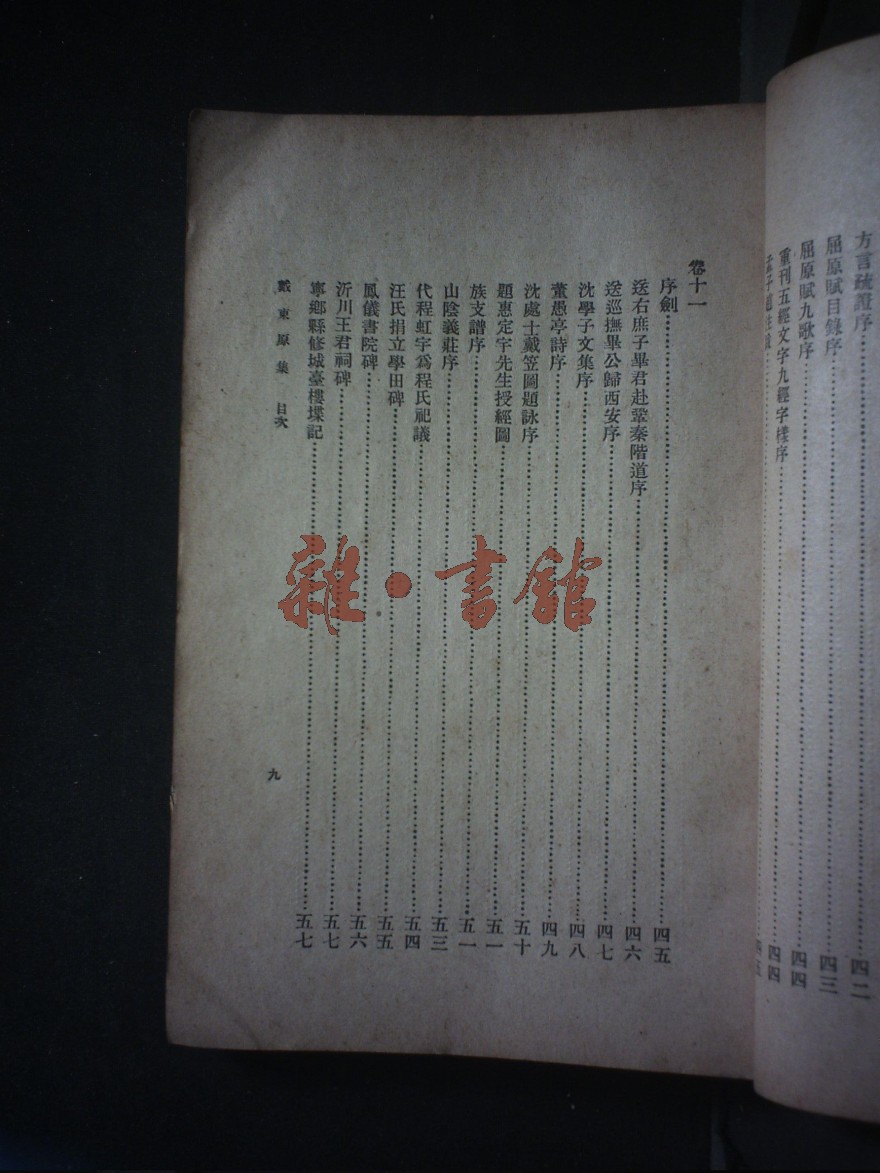 方言疏證序……四二
屈原賦目錄序……四三
屈原賦九歌序……四四
重刊五經文字九經字樣序……四四
卷十一
序劍……四五
送右庶子畢君赴鞏秦階道序……四六
送巡撫畢公歸西安序……四七
沈學子文集序……四八
董愚亭詩序……四九
沈處士戴笠圖題詠序……五十
題惠定宇先生授經圖……五一
族支譜序……五一
山陰義莊序……五三
代程虹宇爲程氏祀議……五四
汪氏捐立學田碑……五五
鳳儀書院碑……五六
沂川王君祠碑……五七
寧鄉縣修城臺樓堞記……五七
戴東原集 目次
九
雜·書館